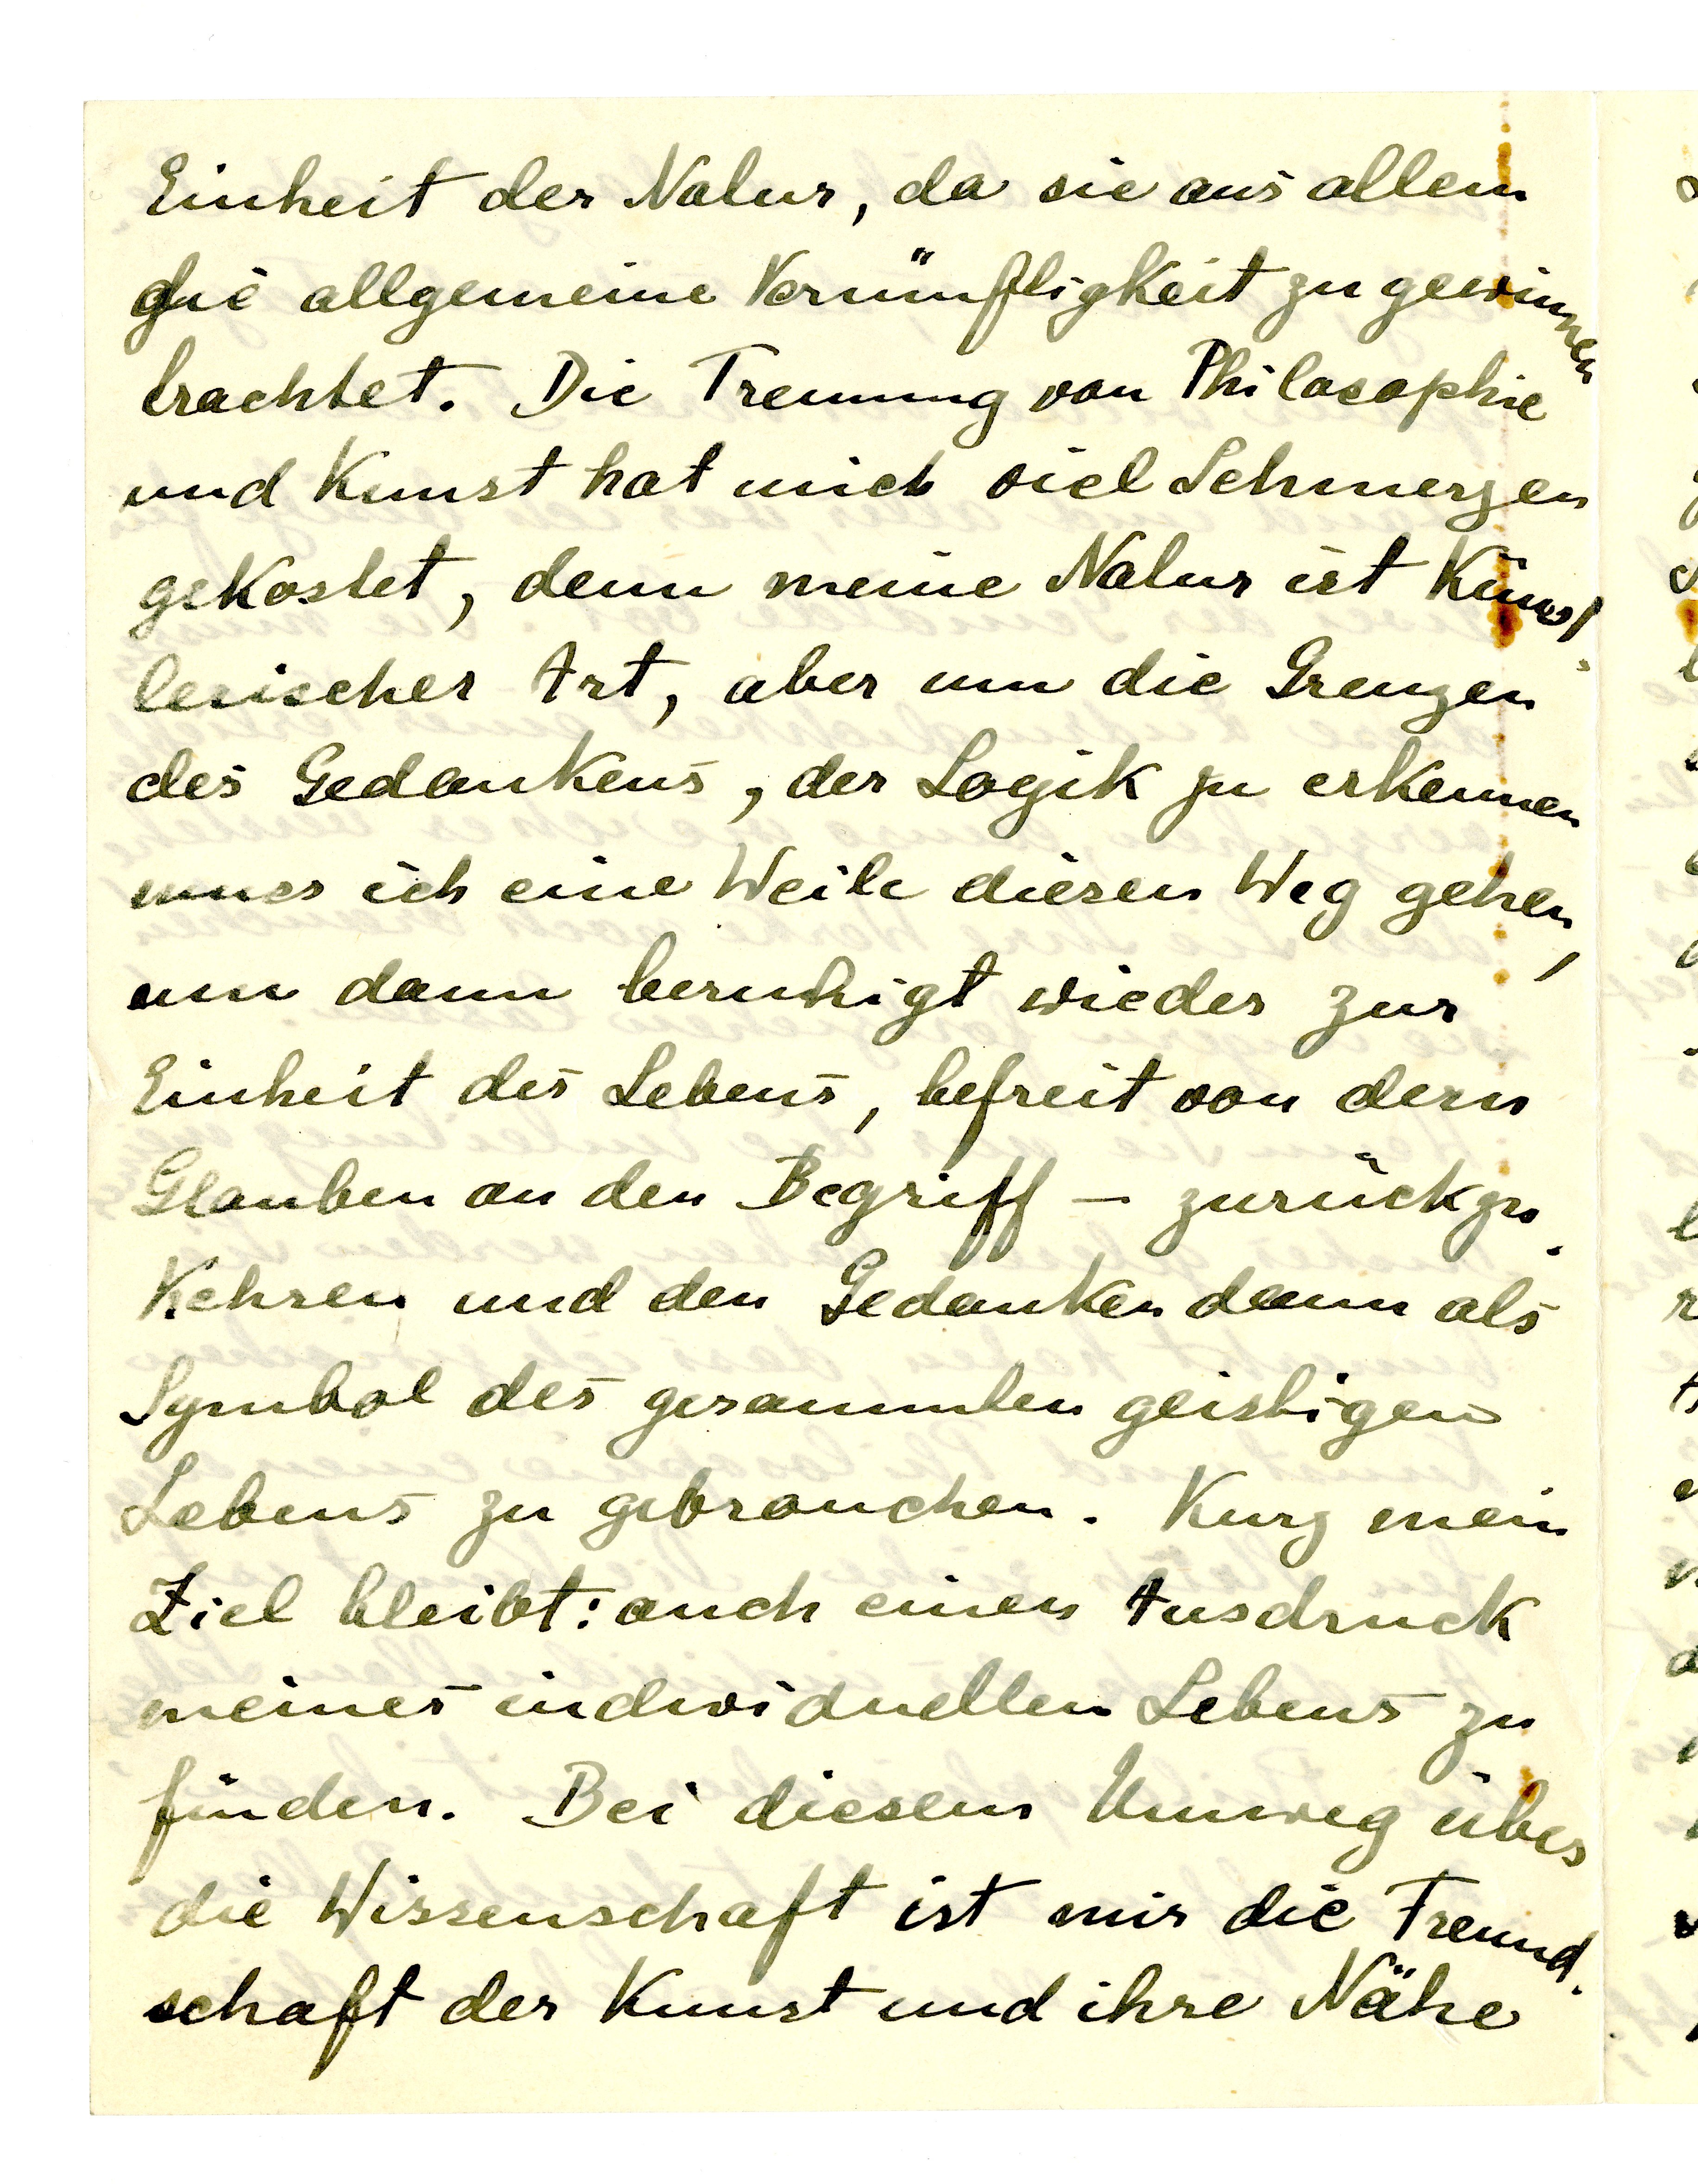 Einheit der Natur, da sie aus allem
die allgemeine Vernünftigkeit zu gewinnen
trachtet. Die Trennung von Philosophie
und Kunst hat mich viel Schmerzen
gekostet, denn meine Natur ist künst-
lerischer Art, aber um die Grenzen
des Gedankens, der Logik zu erkennen
muss ich eine Weile diesen Weg gehen,
um dann beruhigt wieder zur
Einheit des Lebens, befreit von dem
Glauben an den Begriff – zurückzu-
kehren und den Gedanken dann als
Symbol des gesammten geistigen
Lebens zu gebrauchen. Kurz mein
Ziel bleibt: auch einen Ausdruck
meines individuellen Lebens zu
finden. Bei diesem Umweg über
die Wissenschaft ist mir die Freund-
schaft der Kunst und ihre Nähe